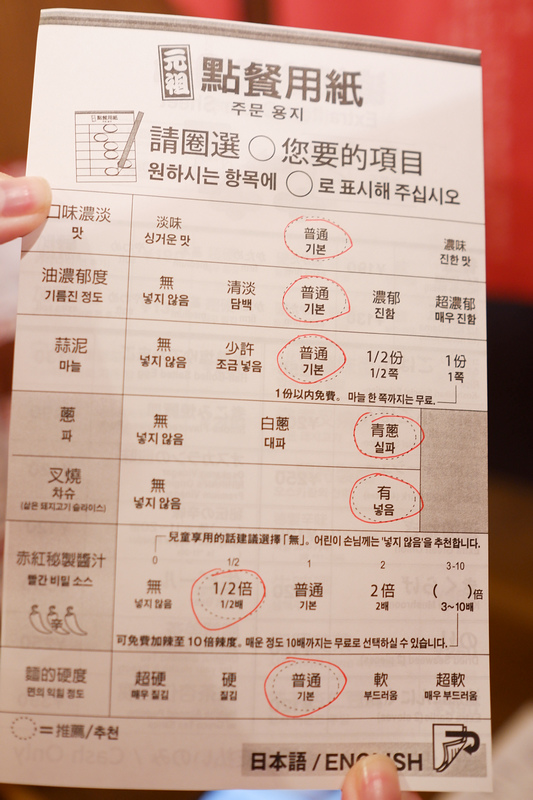 元祖 點餐用紙
주문 용지
點餐用紙
請圈選 ◯ 您要的項目
원하시는 항목에 ◯ 로 표시해 주십시오
口味濃淡 淡味 普通 濃味
맛 싱거운 맛 기본 진한 맛
油濃郁度 無 清淡 普通 濃郁 超濃郁
기름진 정도 넣지 않음 담백 기본 진함 매우 진함
蒜泥 無 少許 普通 1/2份 1份
마늘 넣지 않음 조금 넣음 기본 1/2쪽 1쪽
1份以內免費。 마늘 한 쪽까지는 무료.
蔥 無 白蔥 青蔥
파 넣지 않음 대파 실파
叉燒 無 有
차슈 넣지 않음 넣음
(삶은 돼지고기 슬라이스)
兒童享用的話建議選擇「無」。 어린이 손님께는 '넣지 않음'을 추천합니다.
0 1/2 1 2 3-10
赤紅秘製醬汁 無 1/2倍 普通 2倍 ( )倍
빨간 비밀 소스 넣지 않음 1/2배 기본 2배 3~10배
辛
可免費加辣至10倍辣度。 매운 정도 10배까지는 무료로 선택하실 수 있습니다.
麵的硬度 超硬 硬 普通 軟 超軟
면의 익힘 정도 매우 질김 질김 기본 부드러움 매우 부드러움
=推薦/추천
日本語 / ENGLISH